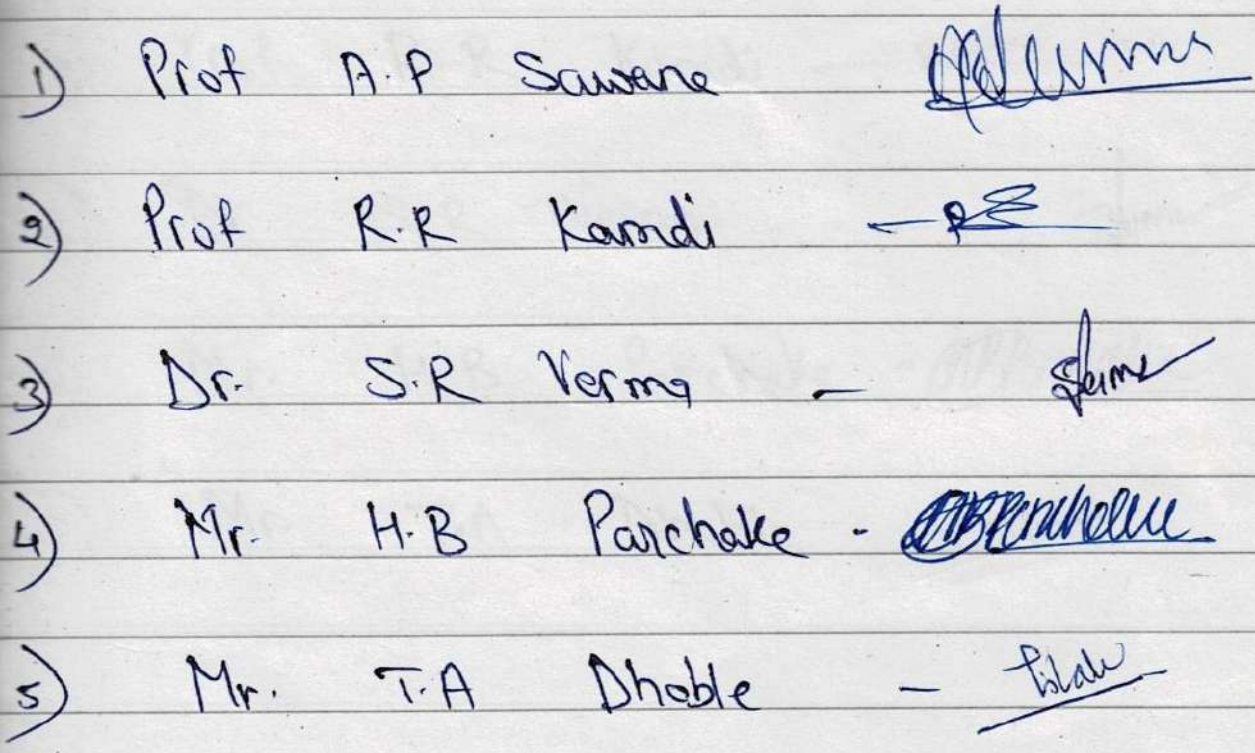 1) Prof A.P Sawane
2) Prof R.R Kamdi -
3) Dr. S.R Verma -
4) Mr. H.B Parchake -
5) Mr. T.A Dhoble -